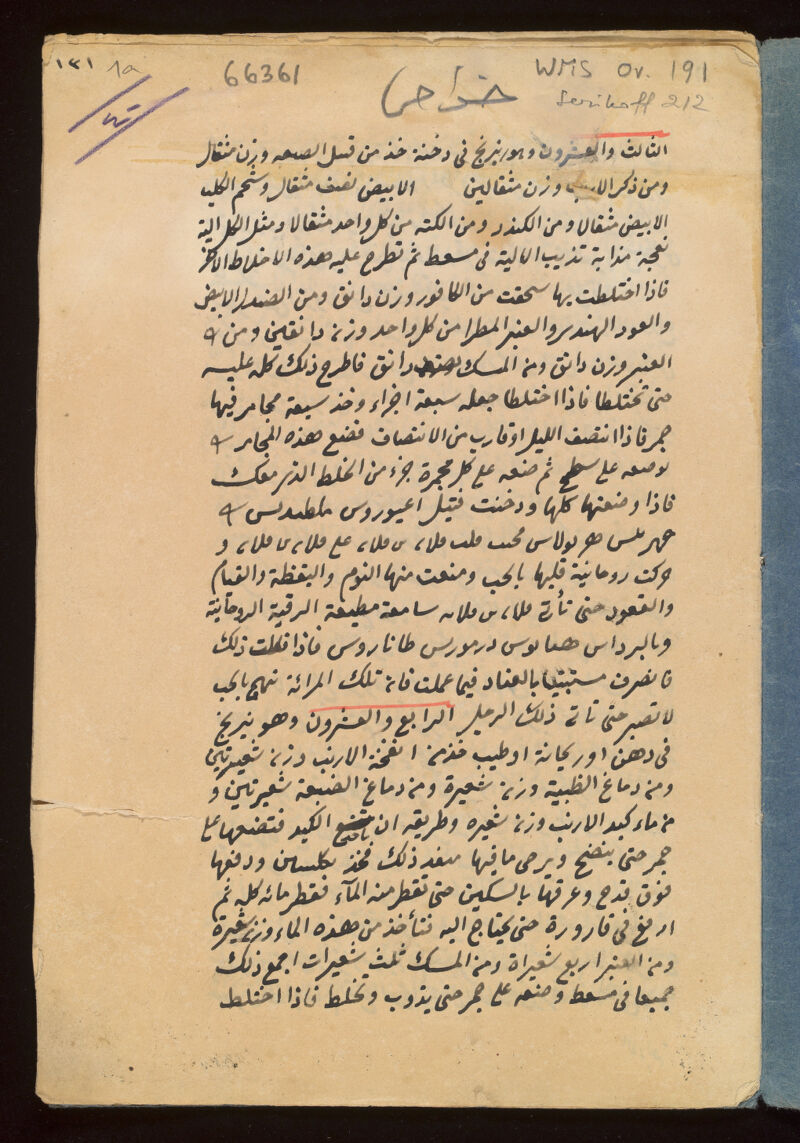 ١٣١ 1a
66361
WMS Or. 191
خواص
Serikoff 212
الثالث والعشرون وهو نيرنج في دخنة خذ من قبل الضبعه وزن مثقال
ومن ذكر وزن مثقالين الابيض نصف مثقال وشحم الكلب
الابيض مثقالا ومن الكندر ومن الكته من كل واحد مثقالا ومثل الكل الية
نعجة مذابة تذيب الالية في مسعط ثم تطرح عليه هذه الاخلاط
فاذا اختلطت بها سحقت من الكافور وزن دانق ومن الصندل الابيض
والعود الهندي والعنبر المطرا من كل واحد وزن دانقين ومن
العنبر وزن دانق ومن المسك دانق فاطرح ذلك كله عليه
حتى تختلطا فاذا اختلطا جعله سبعة اجزاء وخذ سبعة مجامر فيها
جمر فاذا انتصف الليل او قارب من الانتصاف فضع هذه المجامر
توضعه على سطح ثم ضعه على كل مجمرة جزء من الخلط الذي معك
فاذا وضعتها كلها ودخنت فقيل اعيوروس
هو بولاس قلب فلانه بن فلانه على فلانه بن فلانه و
حركت روحانية قلبها بالحب ومنعت منها النوم واليقظة والقيام
والقعود حتى تأتي فلانه بن فلانه سامعة مطيعة الرقية الروحانية
درموريس طاناروس فاذا فعلت ذلك
فانصرف بالعناد فيما عملت فان تلك المرائة تهيج بالحب
لا تصبر حتى تاتي ذلك الرجل الرابع والعشرون وهو نيرنج
في دهن او ريحانة او طيب خذ من انفخة الارنب وزن شعيرتين
ومن دماغ الظبية وزن شعيرة ومن دماغ الضبعة شعيرتين و
من ماء كبد الارنب وزن شعيره وطريقه ان الكبد فتضعها على
جمر حتى ينضج ويرمى ما فيها بعد ذلك فخذ ودفنها
فوق قدح وعرقها بالسكين حتى تقطر منه المآء فقطر مائه كله ثم
ارفع في قارورة حتى يحتاج اليه فتأخذ من هذه الماء وزن شعيرة
ومن العنبر اربع شعيراة ومن المسك ثلث شعيرات اجمع ذلك
جميعا في مسعط وضعه على جمر حتى يذوب وتخلط فاذا اختلط